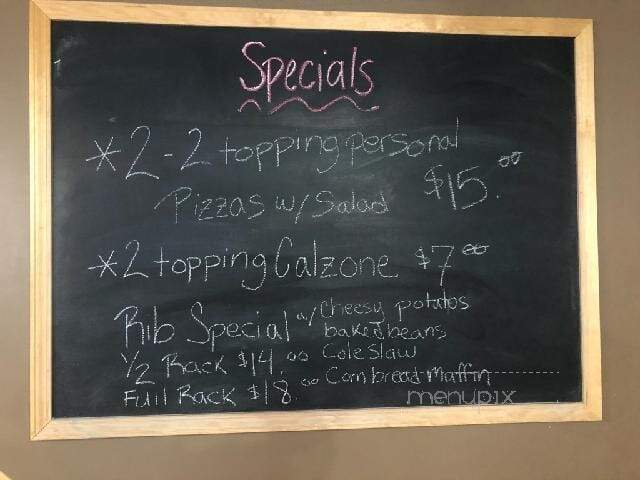 Specials
*2-2 topping personal
Pizzas w/ Salad $15.00
*2 topping Calzone $7.00
Rib Special w/ Cheesy potatos
baked beans
1/2 Rack $14.00 Cole Slaw
Full Rack $18.00 Corn bread Maffin
menupix